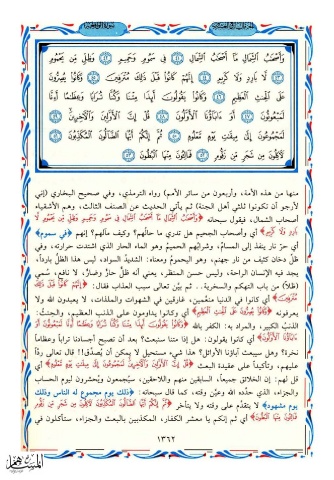 وَأَصْحَٰبُ ٱلشِّمَالِ مَآ أَصْحَٰبُ ٱلشِّمَالِ ٤١ فِى سَمُومٍ وَحَمِيمٍ ٤٢ وَظِلٍّ مِّن يَحْمُومٍ
٤٣ لَّا بَارِدٍ وَلَا كَرِيمٍ ٤٤ إِنَّهُمْ كَانُوا۟ قَبْلَ ذَٰلِكَ مُتْرَفِينَ ٤٥ وَكَانُوا۟ يُصِرُّونَ
عَلَى ٱلْحِنثِ ٱلْعَظِيمِ ٤٦ وَكَانُوا۟ يَقُولُونَ أَئِذَا مِتْنَا وَكُنَّا تُرَابًا وَعِظَٰمًا أَءِنَّا
لَمَبْعُوثُونَ ٤٧ أَوَءَابَآؤُنَا ٱلْأَوَّلُونَ ٤٨ قُلْ إِنَّ ٱلْأَوَّلِينَ وَٱلْءَاخِرِينَ ٤٩
لَمَجْمُوعُونَ إِلَىٰ مِيقَٰتِ يَوْمٍ مَّعْلُومٍ ٥٠ ثُمَّ إِنَّكُمْ أَيُّهَا ٱلضَّآلُّونَ ٱلْمُكَذِّبُونَ ٥١
لَءَاكِلُونَ مِن شَجَرٍ مِّن زَقُّومٍ ٥٢ فَمَالِـُٔونَ مِنْهَا ٱلْبُطُونَ ٥٣
منها من هذه الأمة، وأربعون من سائر الأمم) رواه الترمذي، وفي صحيح البخاري (إني
لأرجو أن تكونوا ثلثي أهل الجنة) ثم يأتي الحديث عن الصنف الثالث، وهم الأشقياء
أصحاب الشمال، فيقول سبحانه ﴿وَأَصْحَٰبُ ٱلشِّمَالِ مَآ أَصْحَٰبُ ٱلشِّمَالِ فِى سَمُومٍ وَحَمِيمٍ وَظِلٍّ مِّن يَحْمُومٍ لَّا
بَارِدٍ وَلَا كَرِيمٍ﴾ أي وأصحاب الجحيم هل تدري ما حالُهم؟ وكيف مآلُهم؟ إنهم ﴿في سموم﴾
أي حرّ نار ينفذ إلى المسامّ، وشرابُهم الحميمُ وهو الماء الحار الذي اشتدت حرارته، وفي
ظلّ دخان كثيف من نار جهنم، وهو اليحموم ومعناه: الشديدُ السواد، ليس هذا الظلّ بارداً،
يجد فيه الإنسان الراحة، وليس حسن المنظر، يعني أنه ظلّ حارٌّ وضارٌّ، لا نافع، سُمي
(ظلاً) من باب التهكم والسخرية.. ثم بيّن تعالى سبب العذاب فقال: ﴿إِنَّهُمْ كَانُوا۟ قَبْلَ ذَٰلِكَ
مُتْرَفِينَ﴾ أي كانوا في الدنيا منعَّمين، غارقين في الشهوات والملذات، لا يعبدون الله ولا
يعرفونه ﴿وَكَانُوا۟ يُصِرُّونَ عَلَى ٱلْحِنثِ ٱلْعَظِيمِ﴾ أي وكانوا يداومون على الذنب العظيم، والحِنثُ:
الذنبُ الكبير، والمراد به: الكفر بالله ﴿وَكَانُوا۟ يَقُولُونَ أَئِذَا مِتْنَا وَكُنَّا تُرَابًا وَعِظَٰمًا أَءِنَّا لَمَبْعُوثُونَ أَوَءَابَآؤُنَا
ٱلْأَوَّلُونَ﴾ أي كانوا يقولون: هل إذا متنا سنُبعث؟ بعد أن تصبح أجسادنا تراباً وعظاماً
نخرة؟ وهل سيبعث آباؤنا الأوائل؟ هذا شيء مستحيل لا يمكن أن يُصدَّق!! قال تعالى ردّاً
عليهم، وتأكيداً على عقيدة البعث ﴿قُلْ إِنَّ ٱلْأَوَّلِينَ وَٱلْءَاخِرِينَ لَمَجْمُوعُونَ إِلَىٰ مِيقَٰتِ يَوْمٍ مَّعْلُومٍ﴾ أي
قل لهم: إن الخلائق جميعاً، السابقين منهم واللاحقين، سيُجمعون ويُحشرون ليوم الحساب
والجزاء، الذي حدّده الله وعيّن وقته، كما قال سبحانه: ﴿ذلك يوم مجموع له الناس وذلك
يوم مشهود﴾ لا يتقدّم على وقته ولا يتأخر ﴿ثُمَّ إِنَّكُمْ أَيُّهَا ٱلضَّآلُّونَ ٱلْمُكَذِّبُونَ لَءَاكِلُونَ مِن شَجَرٍ مِّن زَقُّومٍ
فَمَالِـُٔونَ مِنْهَا ٱلْبُطُونَ﴾ أي ثم إنكم يا معشر الكفار، المكذبين بالبعث والجزاء، ستأكلون في
١٣٦٢